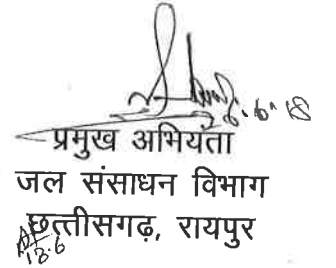 प्रमुख अभियंता
जल संसाधन विभाग
छत्तीसगढ़, रायपुर
18.6